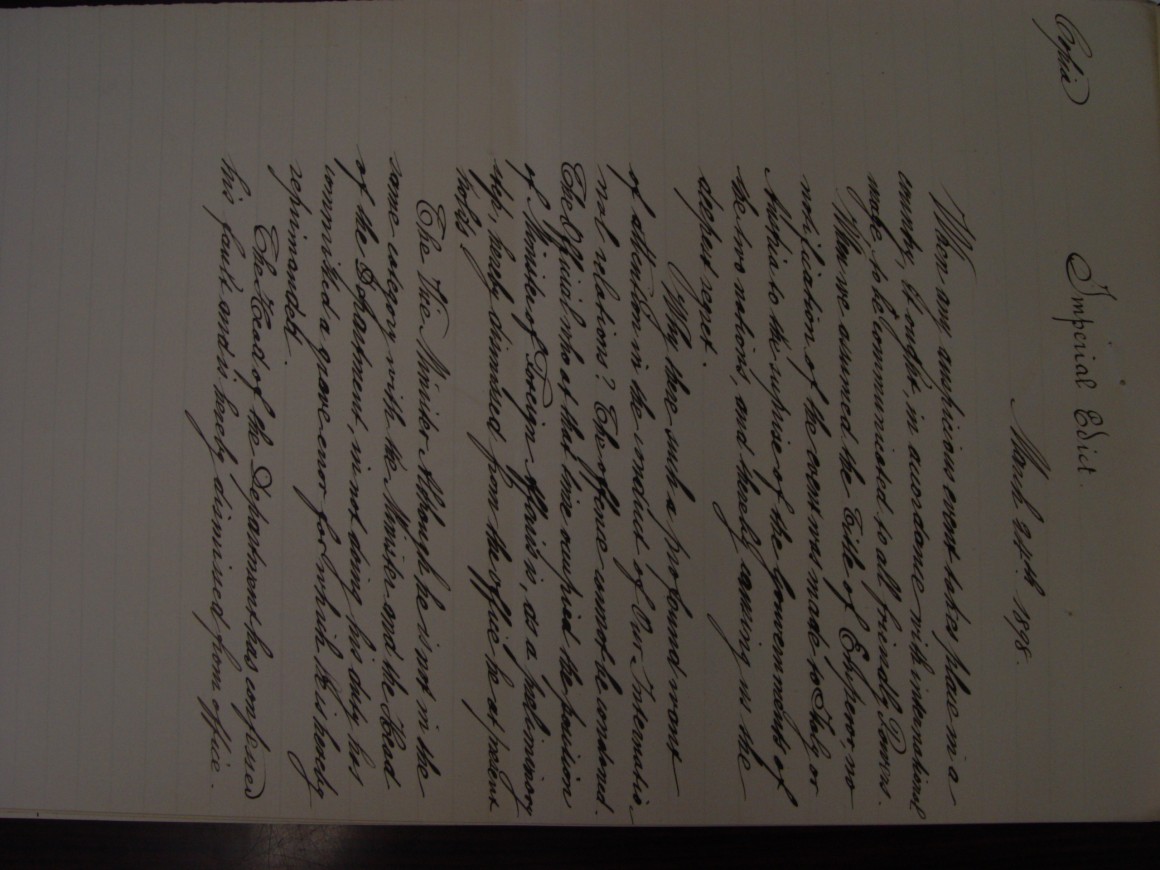 Copie
Imperial Edict.
March 24th. 1898.
When any auspicious event takes place in a
country, it ought, in accordance with international
usage, to be communicated to all friendly Powers.
When we assumed the Title of Emperor, no
notification of the event was made to Italy or
Austria to the surprise of the Governments of
the two nations, and thereby causing us the
deepest regret.
Why there such a profound want
of attention in the conduct of Our Internatio-
nal relations? The offence cannot be condoned.
The Official who at that time occupied the position
of Minister of Foreign Affairs is, as a preliminary
step, hereby dismissed from the office he at present
holds.
The Vice Minister Although he is not in the
same category with the Minister and the Head
of the Department, in not doing his duty has
committed a grave error for which he is hereby
reprimanded.
The Head of the Department has confessed
his fault and is hereby dismissed from office.